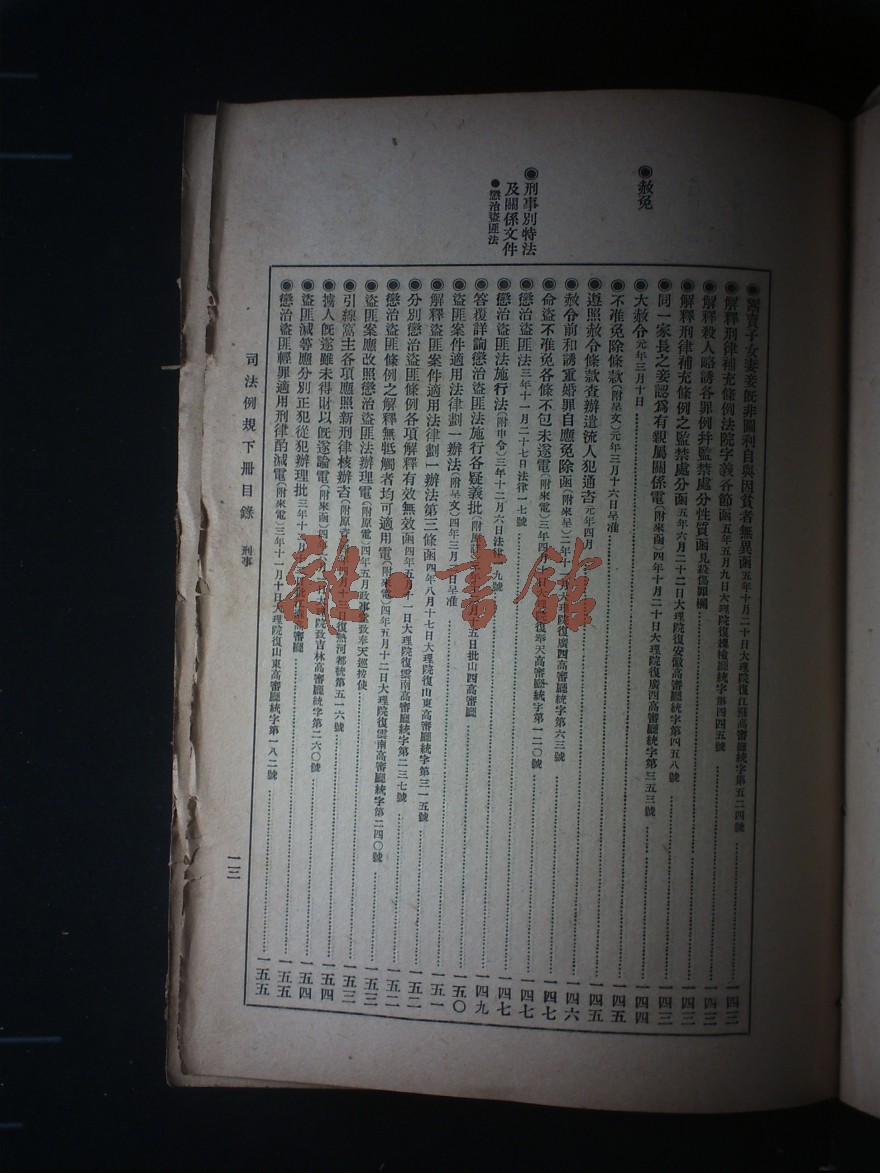 ◉赦免
◉刑事別特法
及關係文件
●懲治盜匪法
◉賣子女妻妾旣非圖利自與因貧者無異函五年十月二十日大理院復江蘇高審廳統字第五二四號 一四三
◉解釋刑律補充條例法院字義各節函五年五月九日大理院復總檢廳統字第四四五號 一四三
◉解釋殺人略誘各罪例幷監禁處分性質函見殺傷罪欄 一四三
◉解釋刑律補充條例之監禁處分函五年六月二十二日大理院復安徽高審廳統字第四五八號 一四三
◉同一家長之妾認爲有親屬關係電(附來函)四年十月二十日大理院復廣西高審廳統字第三五三號 一四三
◉大赦令元年三月十日 一四四
◉不准免除條款(附呈文)元年三月十六日呈准 一四五
◉遵照赦令條款查辦遣流人犯通吿元年四月 一四五
◉赦令前和誘重婚罪自應免除函(附來呈)二年十月大理院復廣西高審廳統字第六三號 一四六
◉命盜不准免各條不包未遂電(附來電)三年四月十日大理院復奉天高審廳統字第一二〇號 一四七
◉懲治盜匪法三年十一月二十七日法律一七號 一四七
◉懲治盜匪法施行法(附申令)三年十二月六日法律九號 一四七
◉答覆詳詢懲治盜匪法施行各疑義批(附原十五日批山西高審廳 一四九
◉盜匪案件適用法律劃一辦法(附呈文)四年三月日呈准 一五〇
◉解釋盜匪案件適用法律劃一辦法第三條函四年八月十七日大理院復山東高審廳統字第三一五號 一五一
◉分別懲治盜匪條例各項解釋有效無效函四年五月十一日大理院復雲南高審廳統字第二三七號 一五二
◉懲治盜匪條例之解釋無牴觸者均可適用電(附來電)四年五月十二日大理院復雲南高審廳統字第二四〇號 一五二
◉盜匪案應改照懲治盜匪法辦理電(附原電)四年五月政事堂致奉天巡按使 一五三
◉引線窩主各項應照新刑律核辦吿(附原日復熱河都統第五一六號 一五三
◉擄人旣遂雖未得財以旣遂論電(附來函)四年六月日大理院致吉林高審廳統字第二六〇號 一五四
◉盜匪減等應分別正犯從犯辦理批三年十月日批江蘇高審廳 一五四
◉懲治盜匪輕罪適用刑律酌減電(附來電)三年十一月十日大理院復山東高審廳統字第一八二號 一五五
一五五
司法例規下冊目錄 刑事 一三
雜·書館